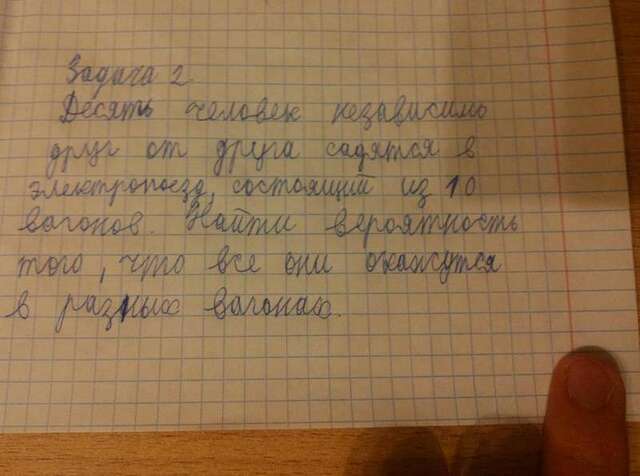 Задача 2.
Десять человек независимо
друг от друга садятся в
электропоезд, состоящий из 10
вагонов. Найти вероятность
того, что все они окажутся
в разных вагонах.